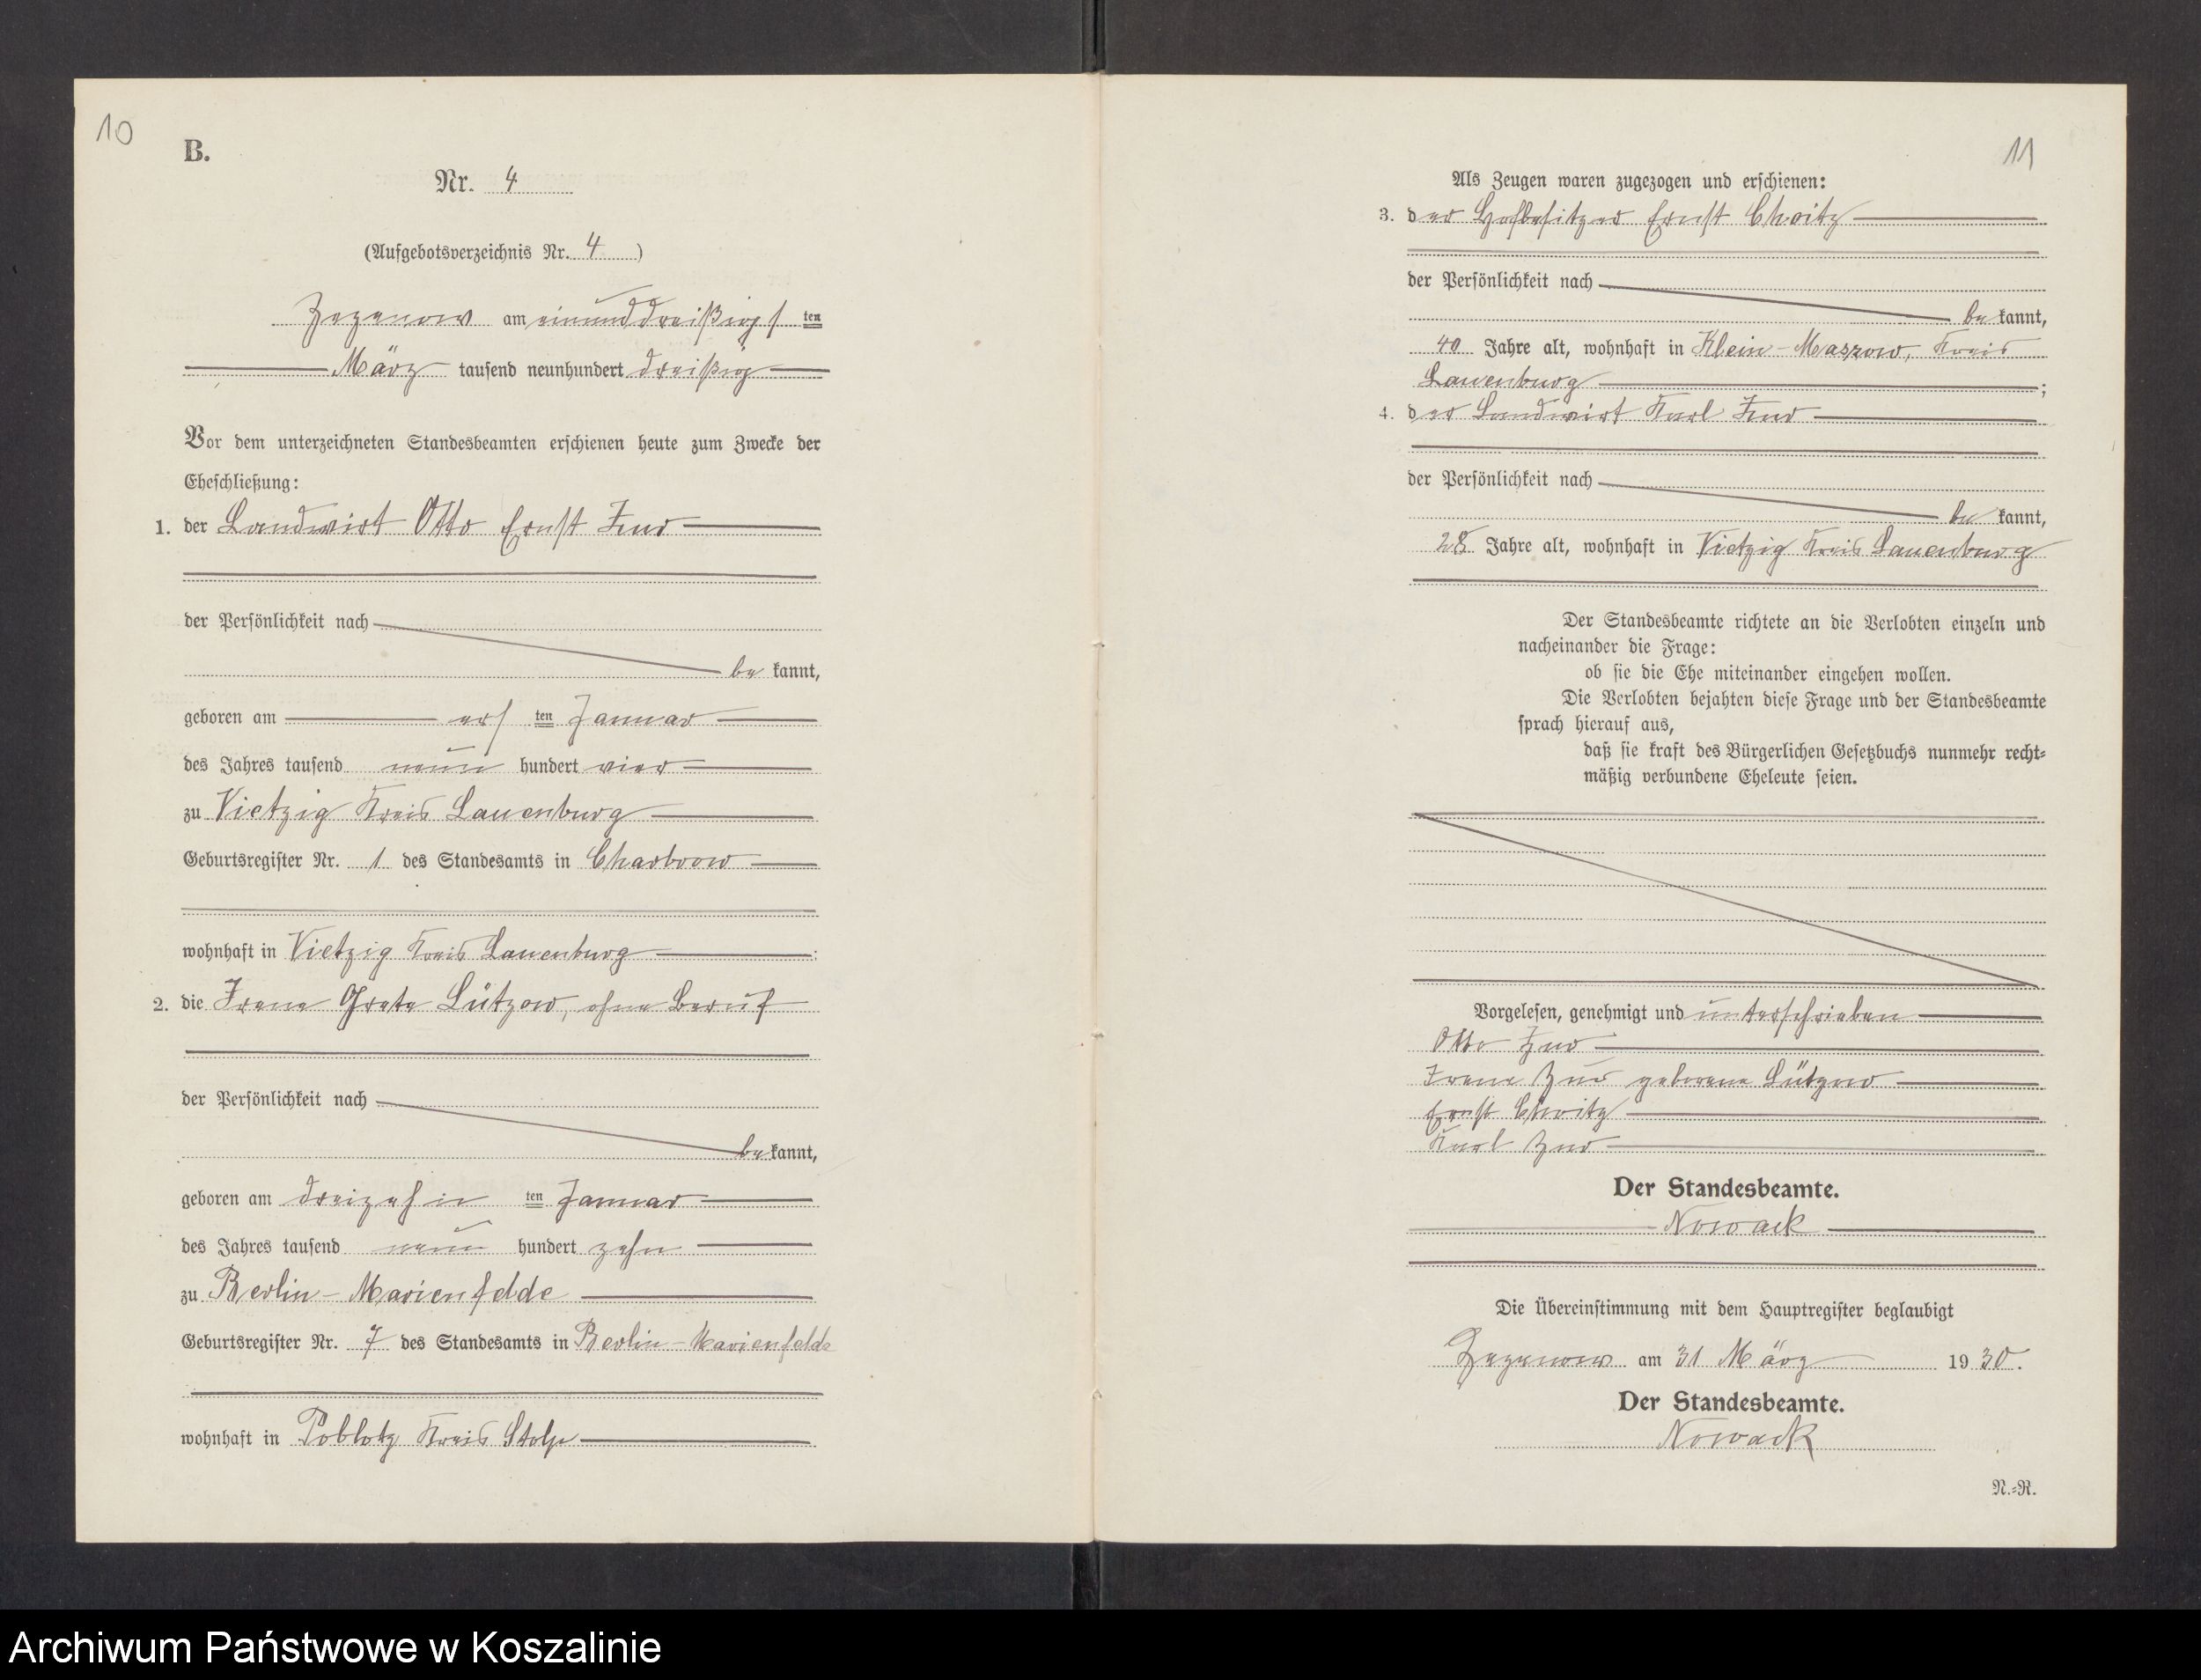 10
B.
Nr. 4
(Aufgebotsverzeichnis Nr. 4)
Zezenow am einunddreißigsten
März tausend neunhundert dreißig
Vor dem unterzeichneten Standesbeamten erschienen heute zum Zwecke der
Eheschließung:
1. der Landwirt Otto Ernst
der Persönlichkeit nach
bekannt,
geboren am ersten Januar
des Jahres tausend neun hundert vier
zu Vietzig Kreis Lauenburg
Geburtsregister Nr. 1 des Standesamts in Charbrow
wohnhaft in Vietzig Kreis Lauenburg;
2. die Irene Grete Lützow, ohne Beruf
der Persönlichkeit nach
bekannt,
geboren am dreizehnten Januar
des Jahres tausend neun hundert zehn
zu Berlin-Marienfelde
Geburtsregister Nr. 7 des Standesamts in Berlin-Marienfelde
wohnhaft in Poblotz Kreis Stolp
11
Als Zeugen waren zugezogen und erschienen:
3. der Hofbesitzer Ernst
der Persönlichkeit nach
bekannt,
40 Jahre alt, wohnhaft in Klein-Massow, Kreis
Lauenburg;
4. der Landwirt Karl
der Persönlichkeit nach
bekannt,
28 Jahre alt, wohnhaft in Vietzig Kreis Lauenburg
Der Standesbeamte richtete an die Verlobten einzeln und
nacheinander die Frage:
ob sie die Ehe miteinander eingehen wollen.
Die Verlobten bejahten diese Frage und der Standesbeamte
sprach hierauf aus,
daß sie kraft des Bürgerlichen Gesetzbuchs nunmehr recht-
mäßig verbundene Eheleute seien.
Vorgelesen, genehmigt und unterschrieben
Otto
Irene geborene Lützow
Ernst
Karl
Der Standesbeamte.
Nowack
Die Übereinstimmung mit dem Hauptregister beglaubigt
Zezenow am 31 März 1930.
Der Standesbeamte.
Nowack
N.-R.
Archiwum Państwowe w Koszalinie